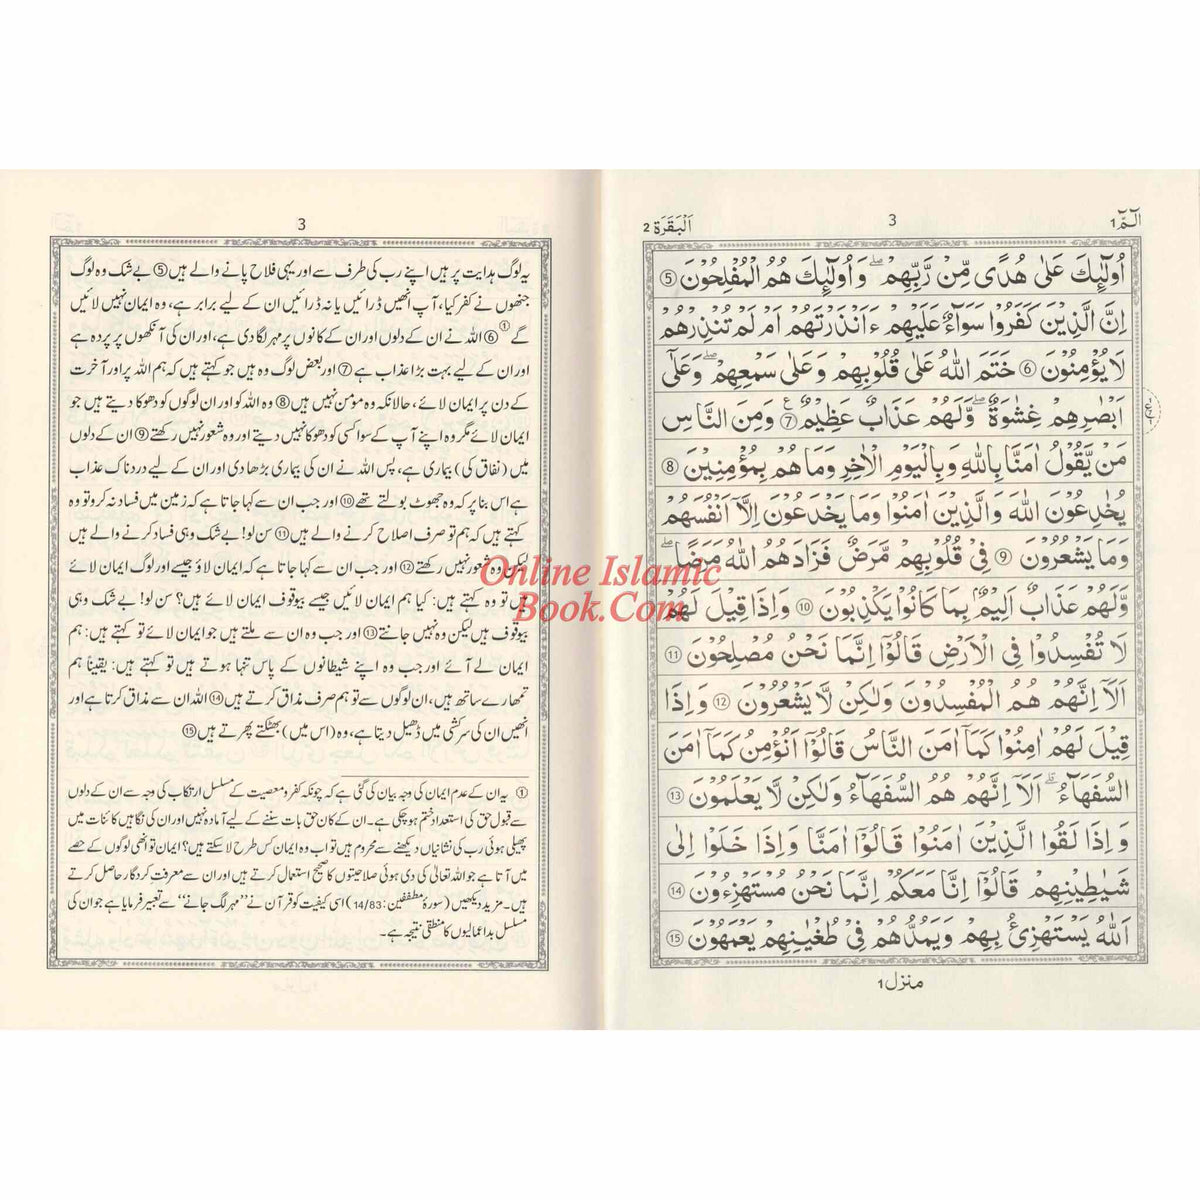 الٓمّٓ 1
3
اَلْبَقَرَة 2
اُولٰٓئِكَ عَلٰى هُدًى مِّنْ رَّبِّهِمْ ۖ وَاُولٰٓئِكَ هُمُ الْمُفْلِحُوْنَ 5
اِنَّ الَّذِيْنَ كَفَرُوْا سَوَآءٌ عَلَيْهِمْ ءَاَنْذَرْتَهُمْ اَمْ لَمْ تُنْذِرْهُمْ
لَا يُؤْمِنُوْنَ 6 خَتَمَ اللّٰهُ عَلٰى قُلُوْبِهِمْ وَعَلٰى سَمْعِهِمْ ۖ وَعَلٰٓى
اَبْصٰرِهِمْ غِشٰوَةٌ ۖ وَّلَهُمْ عَذَابٌ عَظِيْمٌ 7 وَمِنَ النَّاسِ
مَنْ يَّقُوْلُ اٰمَنَّا بِاللّٰهِ وَبِالْيَوْمِ الْاٰخِرِ وَمَا هُمْ بِمُؤْمِنِيْنَ 8
يُخٰدِعُوْنَ اللّٰهَ وَالَّذِيْنَ اٰمَنُوْا وَمَا يَخْدَعُوْنَ اِلَّآ اَنْفُسَهُمْ
وَمَا يَشْعُرُوْنَ 9 فِيْ قُلُوْبِهِمْ مَّرَضٌ فَزَادَهُمُ اللّٰهُ مَرَضًا ۖ
وَّلَهُمْ عَذَابٌ اَلِيْمٌ بِمَا كَانُوْا يَكْذِبُوْنَ 10 وَاِذَا قِيْلَ لَهُمْ
لَا تُفْسِدُوْا فِي الْاَرْضِ قَالُوْٓا اِنَّمَا نَحْنُ مُصْلِحُوْنَ 11
اَلَآ اِنَّهُمْ هُمُ الْمُفْسِدُوْنَ وَلٰكِنْ لَّا يَشْعُرُوْنَ 12 وَاِذَا
قِيْلَ لَهُمْ اٰمِنُوْا كَمَآ اٰمَنَ النَّاسُ قَالُوْٓا اَنُؤْمِنُ كَمَآ اٰمَنَ
السُّفَهَآءُ ۗ اَلَآ اِنَّهُمْ هُمُ السُّفَهَآءُ وَلٰكِنْ لَّا يَعْلَمُوْنَ 13
وَاِذَا لَقُوا الَّذِيْنَ اٰمَنُوْا قَالُوْٓا اٰمَنَّا وَاِذَا خَلَوْا اِلٰى
شَيٰطِيْنِهِمْ قَالُوْٓا اِنَّا مَعَكُمْ اِنَّمَا نَحْنُ مُسْتَهْزِءُوْنَ 14
اَللّٰهُ يَسْتَهْزِئُ بِهِمْ وَيَمُدُّهُمْ فِيْ طُغْيٰنِهِمْ يَعْمَهُوْنَ 15
منزل 1
3
یہ لوگ ہدایت پر ہیں اپنے رب کی طرف سے اور یہی فلاح پانے والے ہیں 5 بے شک وہ لوگ
جنھوں نے کفر کیا، آپ انھیں ڈرائیں یا نہ ڈرائیں ان کے لیے برابر ہے، وہ ایمان نہیں لائیں
گے ① 6 اللہ نے ان کے دلوں اور ان کے کانوں پر مہر لگا دی ہے، اور ان کی آنکھوں پر پردہ ہے
اور ان کے لیے بہت بڑا عذاب ہے 7 اور بعض لوگ وہ ہیں جو کہتے ہیں کہ ہم اللہ پر اور آخرت
کے دن پر ایمان لائے، حالانکہ وہ مؤمن نہیں ہیں 8 وہ اللہ کو اور ان لوگوں کو دھوکا دیتے ہیں جو
ایمان لائے مگر وہ اپنے آپ کے سوا کسی کو دھوکا نہیں دیتے اور وہ شعور نہیں رکھتے 9 ان کے دلوں
میں (نفاق کی) بیماری ہے، پس اللہ نے ان کی بیماری بڑھا دی اور ان کے لیے دردناک عذاب
ہے اس بنا پر کہ وہ جھوٹ بولتے تھے 10 اور جب ان سے کہا جاتا ہے کہ زمین میں فساد نہ کرو تو وہ
کہتے ہیں کہ ہم تو صرف اصلاح کرنے والے ہیں 11 سن لو! بے شک وہی فساد کرنے والے ہیں
لیکن وہ شعور نہیں رکھتے 12 اور جب ان سے کہا جاتا ہے کہ ایمان لاؤ جیسے اور لوگ ایمان لائے
ہیں تو وہ کہتے ہیں: کیا ہم ایمان لائیں جیسے بیوقوف ایمان لائے ہیں؟ سن لو! بے شک وہی
بیوقوف ہیں لیکن وہ نہیں جانتے 13 اور جب وہ ان سے ملتے ہیں جو ایمان لائے تو کہتے ہیں: ہم
ایمان لے آئے اور جب وہ اپنے شیطانوں کے پاس تنہا ہوتے ہیں تو کہتے ہیں: یقیناً ہم
تمھارے ساتھ ہیں، ان لوگوں سے تو ہم صرف مذاق کرتے ہیں 14 اللہ ان سے مذاق کرتا ہے اور
انھیں ان کی سرکشی میں ڈھیل دیتا ہے، وہ (اس میں) بھٹکتے پھرتے ہیں 15
① یہ ان کے عدم ایمان کی وجہ بیان کی گئی ہے کہ چونکہ کفر و معصیت کے مسلسل ارتکاب کی وجہ سے ان کے دلوں
سے قبول حق کی استعداد ختم ہو چکی ہے۔ ان کے کان حق بات سننے کے لیے آمادہ نہیں اور ان کی نگاہیں کائنات میں
پھیلی ہوئی رب کی نشانیاں دیکھنے سے محروم ہیں تو اب وہ ایمان کس طرح لا سکتے ہیں؟ ایمان تو انھی لوگوں کے حصے
میں آتا ہے جو اللہ تعالیٰ کی دی ہوئی صلاحیتوں کا صحیح استعمال کرتے ہیں اور ان سے معرفت کردگار حاصل کرتے
ہیں۔ مزید دیکھیں (سورۂ مطففین: 14/83) اسی کیفیت کو قرآن نے ”مہر لگ جانے“ سے تعبیر فرمایا ہے جو ان کی
مسلسل بداعمالیوں کا منطقی نتیجہ ہے۔
Online Islamic
Book.Com